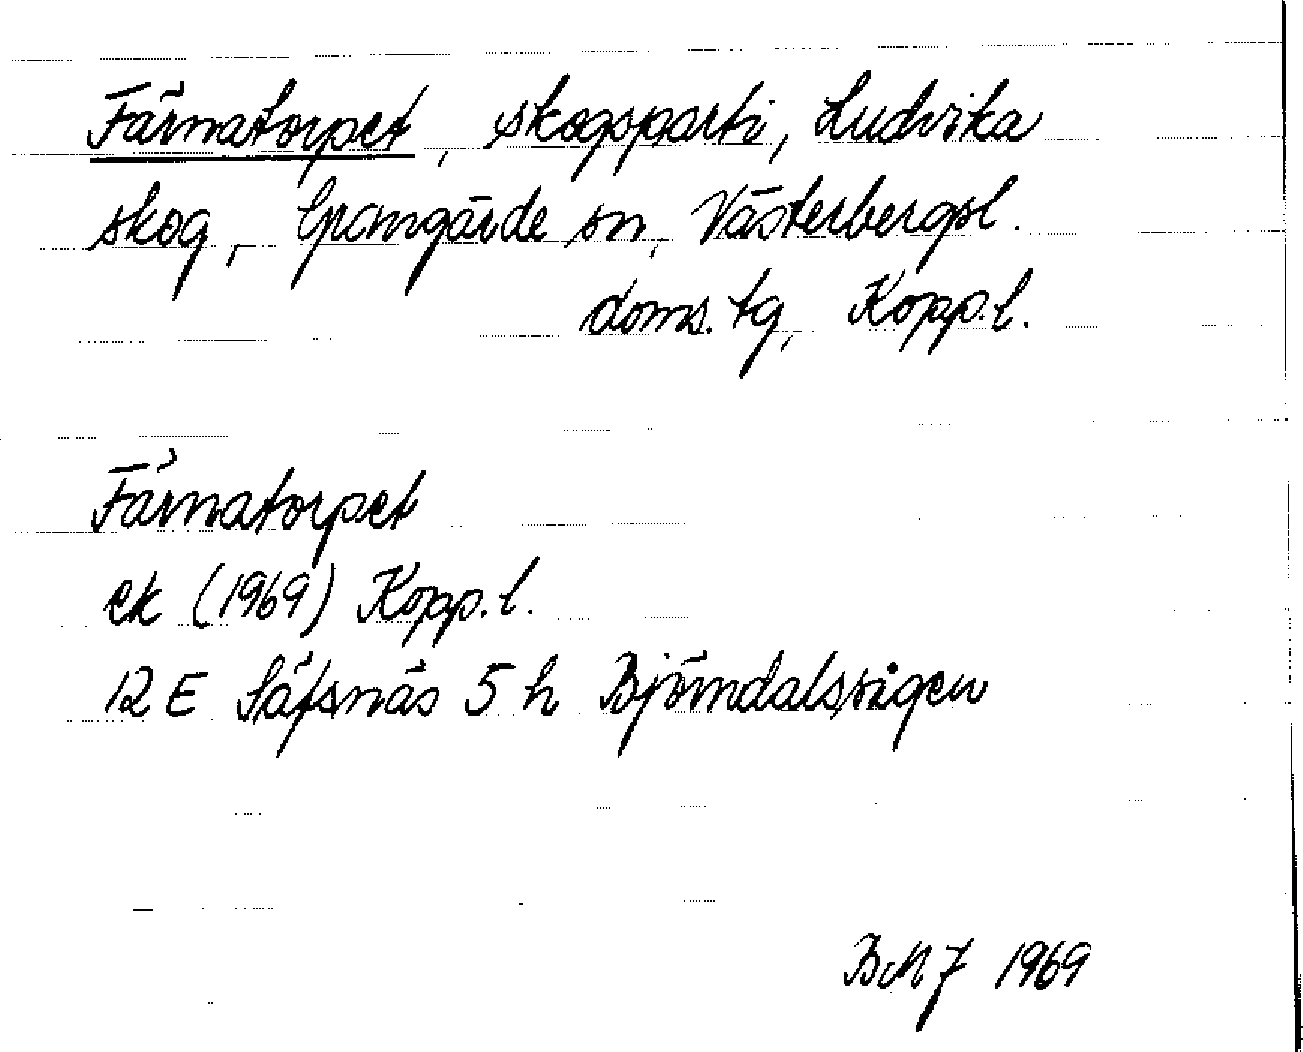 Färnatorpet, skogsparti, Ludvika
skog, Grangärde sn, Västerbergsl.
doms. tg, Kopp. l.
Färnatorpet
ek (1969) Kopp. l.
12 E Säfsnäs 5 h Björndalsvigen
BMJ 1969